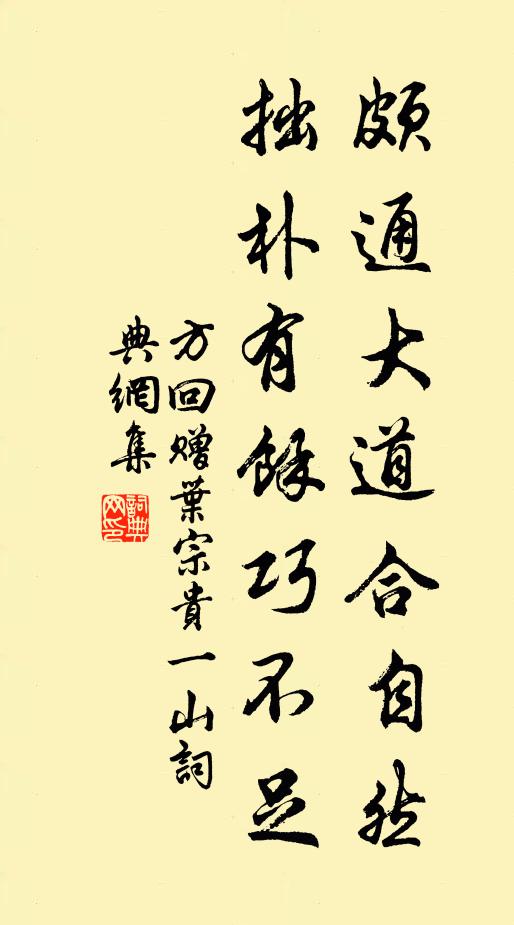 頗通大道合自然
拙朴有餘巧不足
方回贈葉宗貴一山詞
典網集
詞典
网印